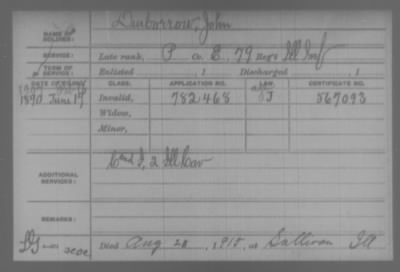 NAME OF SOLDIER: Dunborrow, John
SERVICE: Late rank, P Co. E, 79 Reg't Ill Inf
TERM OF SERVICE: Enlisted , 1 Discharged , 1
DATE OF FILING. CLASS. APPLICATION NO. LAW. CERTIFICATE NO.
1890 June 19 Invalid, 782468 J 567093
Widow,
Minor,
ADDITIONAL SERVICES: I, 2 Ill Cav
REMARKS:
Died Aug 191 , at Sullivan Ill